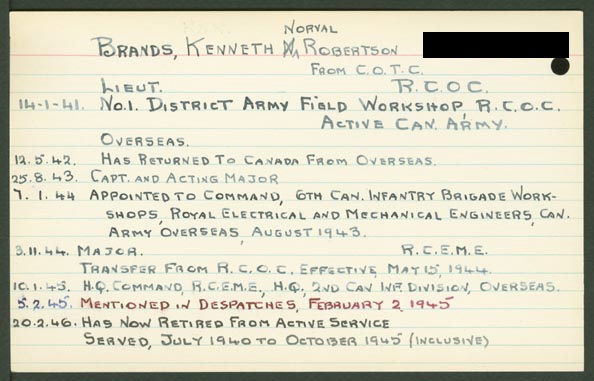 NORVAL
BRANDS, KENNETH N ROBERTSON
FROM C.O.T.C.
LIEUT. R.C.O.C.
14-1-41. NO.1. DISTRICT ARMY FIELD WORKSHOP, R.C.O.C.
ACTIVE CAN. ARMY.
OVERSEAS.
12.5.42. HAS RETURNED TO CANADA FROM OVERSEAS.
25.8.43. CAPT. AND ACTING MAJOR
7.1.44 APPOINTED TO COMMAND, 6TH CAN. INFANTRY BRIGADE WORK-
SHOPS, ROYAL ELECTRICAL AND MECHANICAL ENGINEERS, CAN.
ARMY OVERSEAS, AUGUST 1943.
3.11.44. MAJOR. R.C.E.M.E.
TRANSFER FROM R.C.O.C. EFFECTIVE, MAY 15, 1944.
10.1.45. H.Q. COMMAND, R.C.E.M.E., H.Q. 2ND CAN INF. DIVISION, OVERSEAS.
5.2.45. MENTIONED IN DESPATCHES, FEBRUARY 2, 1945
20.2.46. HAS NOW RETIRED FROM ACTIVE SERVICE
SERVED, JULY 1940 TO OCTOBER 1945 (INCLUSIVE)